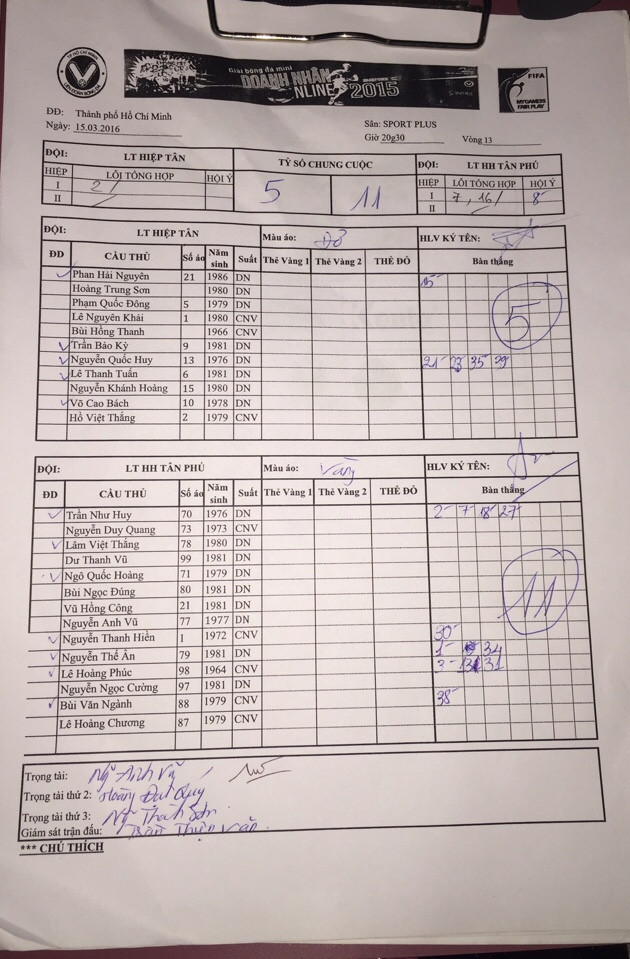 TP HỒ CHÍ MINH
LIÊN ĐOÀN BÓNG ĐÁ
Giải bóng đá mini
DOANH NHÂN
NLINE 2015
FIFA
MY GAME IS
FAIR PLAY
ĐĐ: Thành phố Hồ Chí Minh
Ngày: 15.03.2016
Sân: SPORT PLUS
Giờ 20g30 Vòng 13
ĐỘI: LT HIỆP TÂN TỶ SỐ CHUNG CUỘC ĐỘI: LT HH TÂN PHÚ
HIỆP LỖI TỔNG HỢP HỘI Ý 5 11 HIỆP LỖI TỔNG HỢP HỘI Ý
I 2 / I 7, 16 / 8
II II
ĐỘI: LT HIỆP TÂN Màu áo: Đỏ HLV KÝ TÊN:
ĐD CẦU THỦ Số áo Năm sinh Suất Thẻ Vàng 1 Thẻ Vàng 2 THẺ ĐỎ Bàn thắng
Phan Hải Nguyên 21 1986 DN
Hoàng Trung Sơn 1980 DN
Phạm Quốc Đông 5 1979 DN
Lê Nguyên Khải 1 1980 CNV
Bùi Hồng Thanh 1966 CNV
Trần Bảo Kỳ 9 1981 DN
Nguyễn Quốc Huy 13 1976 DN 21 23 35 39
Lê Thanh Tuấn 6 1981 DN
Nguyễn Khánh Hoàng 15 1980 DN
Võ Cao Bách 10 1978 DN
Hồ Việt Thắng 2 1979 CNV
5
ĐỘI: LT HH TÂN PHÚ Màu áo: Vàng HLV KÝ TÊN:
ĐD CẦU THỦ Số áo Năm sinh Suất Thẻ Vàng 1 Thẻ Vàng 2 THẺ ĐỎ Bàn thắng
Trần Như Huy 70 1976 DN 2 7 18 27
Nguyễn Duy Quang 73 1973 CNV
Lâm Việt Thắng 78 1980 DN
Dư Thanh Vũ 99 1981 DN
Ngô Quốc Hoàng 71 1979 DN
Bùi Ngọc Đúng 80 1981 DN
Vũ Hồng Công 21 1981 DN
Nguyễn Anh Vũ 77 1977 DN
Nguyễn Thanh Hiền 1 1972 CNV 30
Nguyễn Thế Ân 79 1981 DN 1 34
Lê Hoàng Phúc 98 1964 CNV 3 31
Nguyễn Ngọc Cường 97 1981 DN
Bùi Văn Ngành 88 1979 CNV 38
Lê Hoàng Chương 87 1979 CNV
11
Trọng tài: Ng Anh Vũ
Trọng tài thứ 2: Hoàng Đạt Quý
Trọng tài thứ 3: Ng Thanh Sơn
Giám sát trận đấu: Trần Thiện Văn
*** CHÚ THÍCH